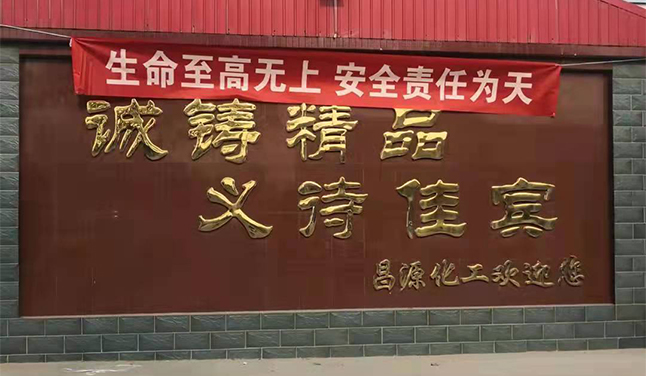 生命至高无上 安全责任为天
诚铸精品
义待佳宾
昌源化工欢迎您